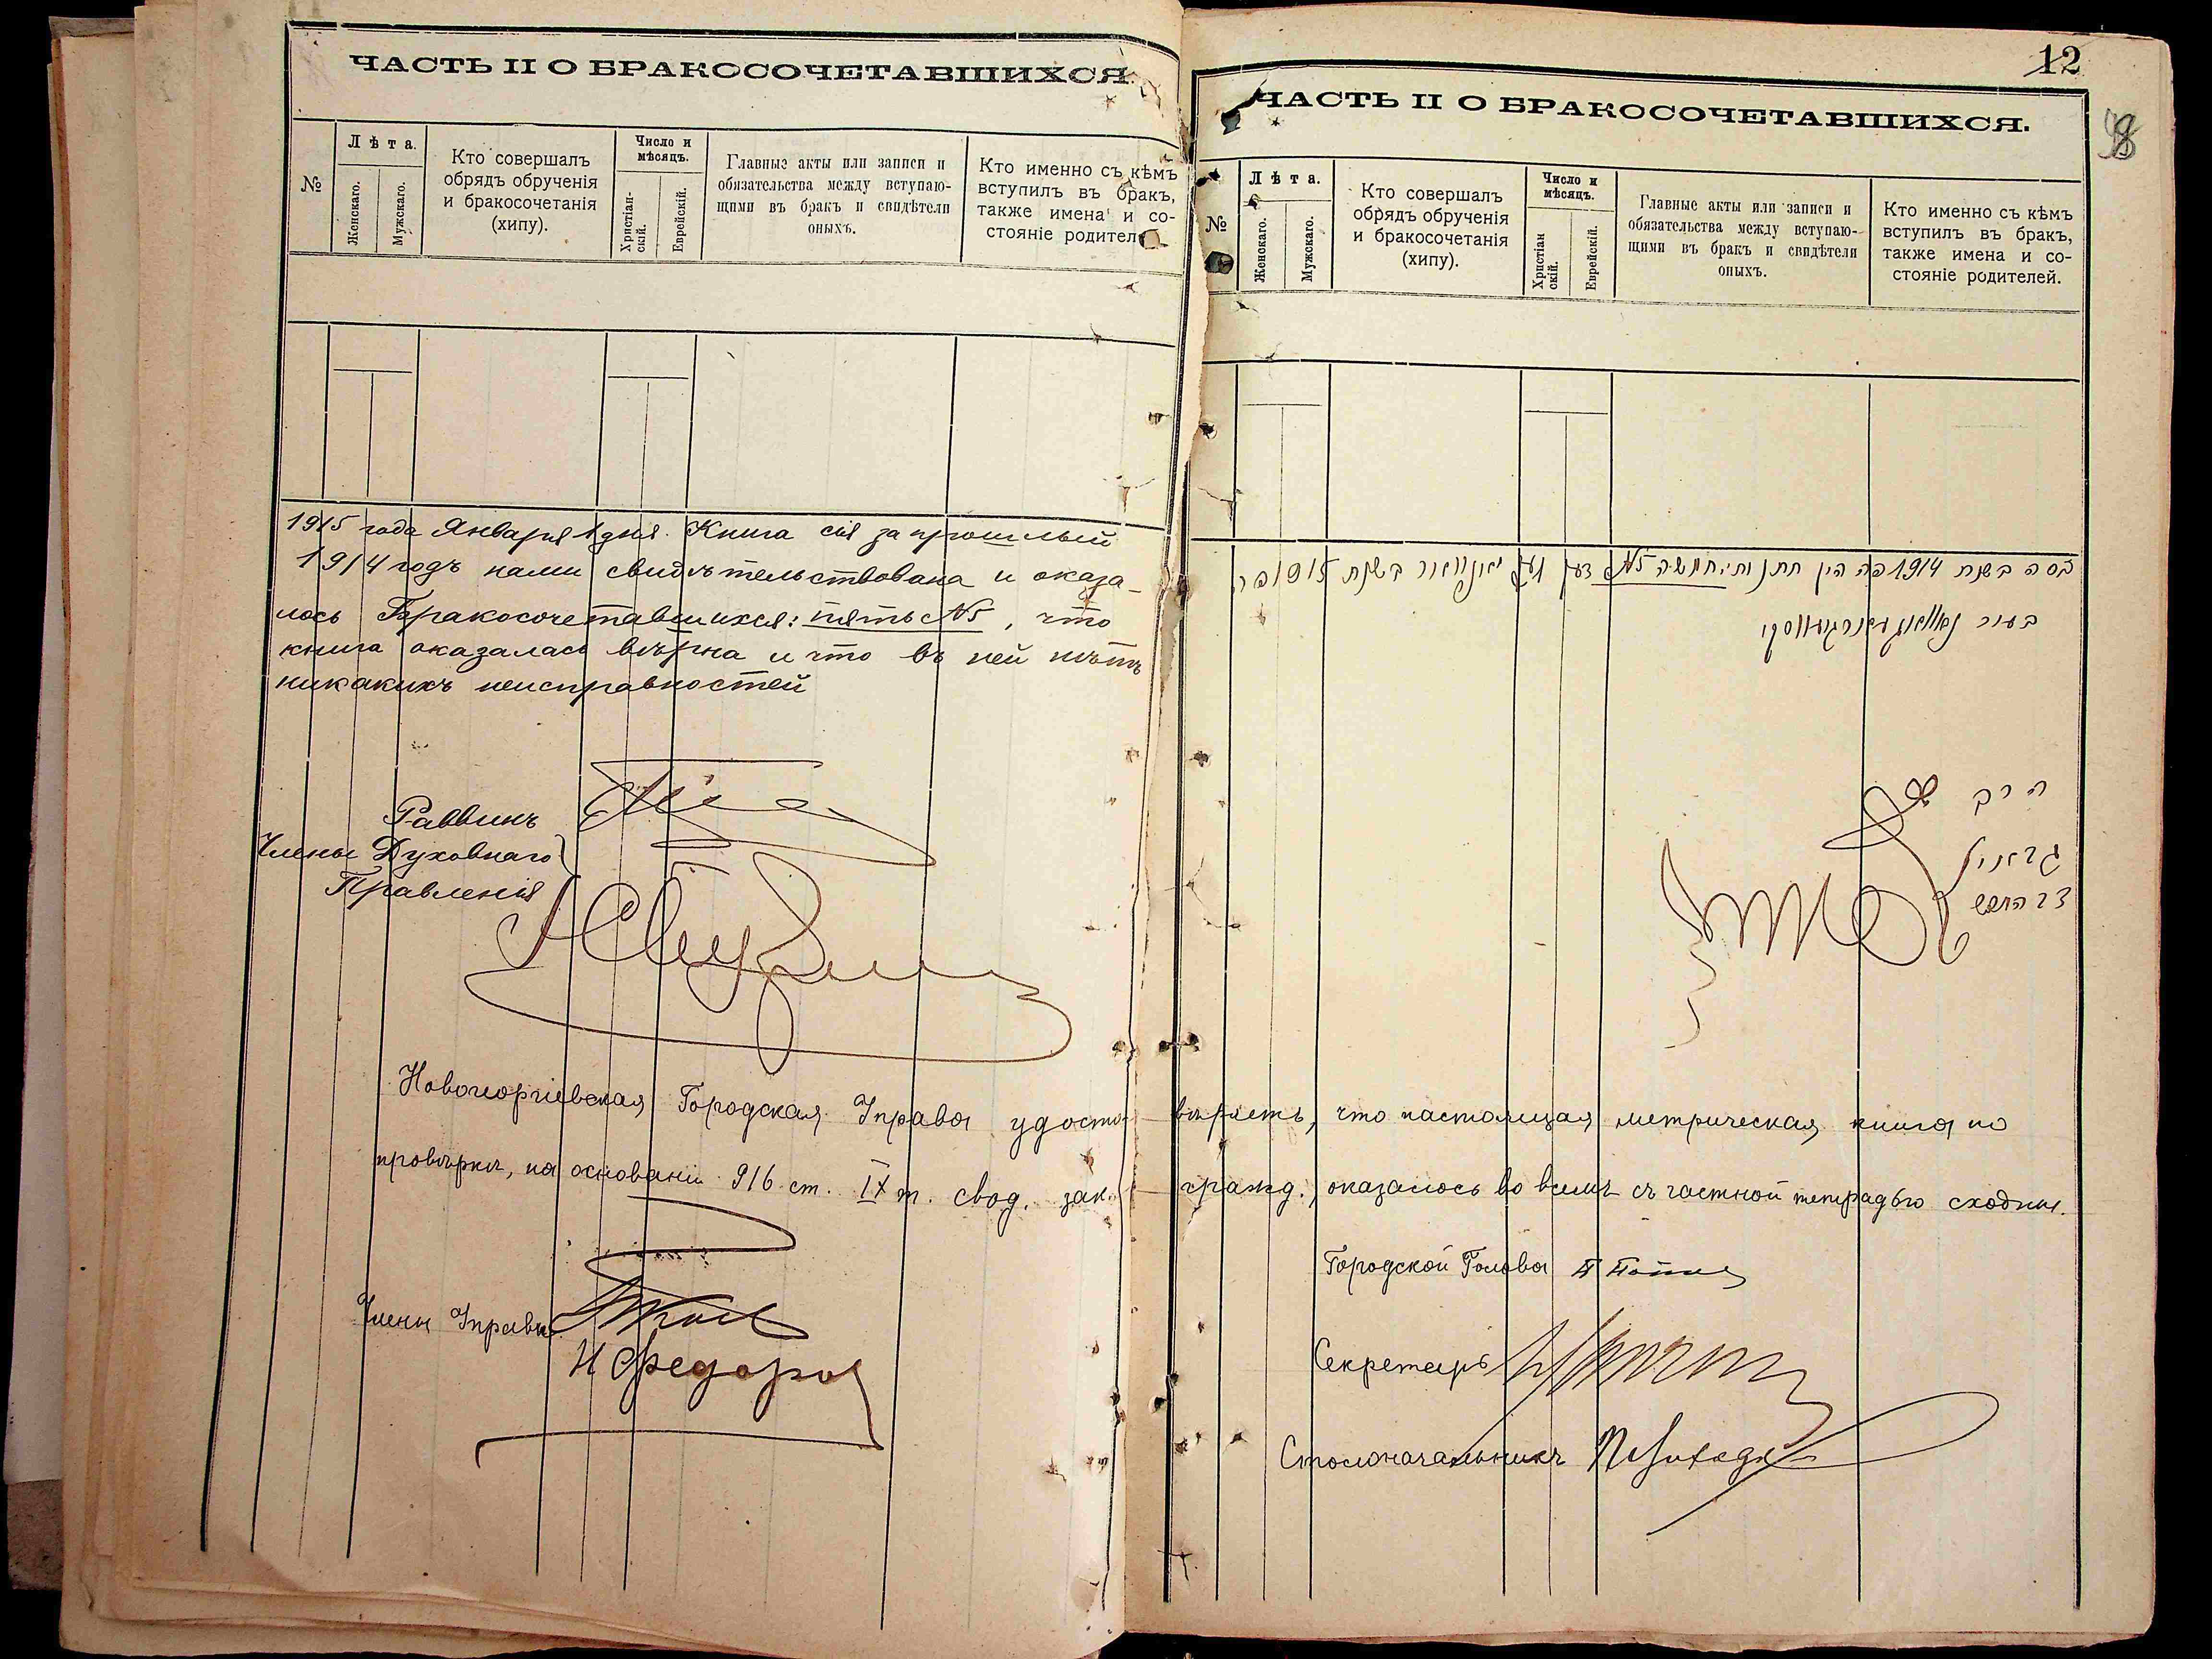 ЧАСТЬ II О БРАКОСОЧЕТАВШИХСЯ.
№
Лѣта.
Женскаго.
Мужскаго.
Кто совершалъ
обрядъ обрученія
и бракосочетанія
(хипу).
Число и
мѣсяцъ.
Христіан-
скій.
Еврейскій.
Главные акты или записи и
обязательства между вступаю-
щими въ бракъ и свидѣтели
оныхъ.
Кто именно съ кѣмъ
вступилъ въ бракъ,
также имена и со-
стояніе родителей
1915 года Января 1 дня. Книга сія за прошлый
1914 годъ нами свидѣтельствована и оказа-
лось Бракосочетавшихся: пять №5, что
книга оказалась вѣрна и что въ ней нѣтъ
никакихъ неисправностей
Раввинъ
Члены Духовнаго
Правленія
Новогеоргіевская Городская Управа удосто-
провѣркѣ, на основаніи 916 ст. IX т. свод. зак.
Члены Управы
Н Федоров
12
ЧАСТЬ II О БРАКОСОЧЕТАВШИХСЯ.
№
Лѣта.
Женскаго.
Мужскаго.
Кто совершалъ
обрядъ обрученія
и бракосочетанія
(хипу).
Число и
мѣсяцъ.
Христіан
скій.
Еврейскій.
Главные акты или записи и
обязательства между вступаю-
щими въ бракъ и свидѣтели
оныхъ.
Кто именно съ кѣмъ
вступилъ въ бракъ,
также имена и со-
стояніе родителей.
בשנת 1914 חמשה №5 יאנוואר בשנת 1915
בעיר
הרב
вѣряетъ, что настоящая метрическая книга по
гражд., оказалось во всемъ съ частной тетрадью сходны.
Городской Голова
Секретарь
Столоначальникъ